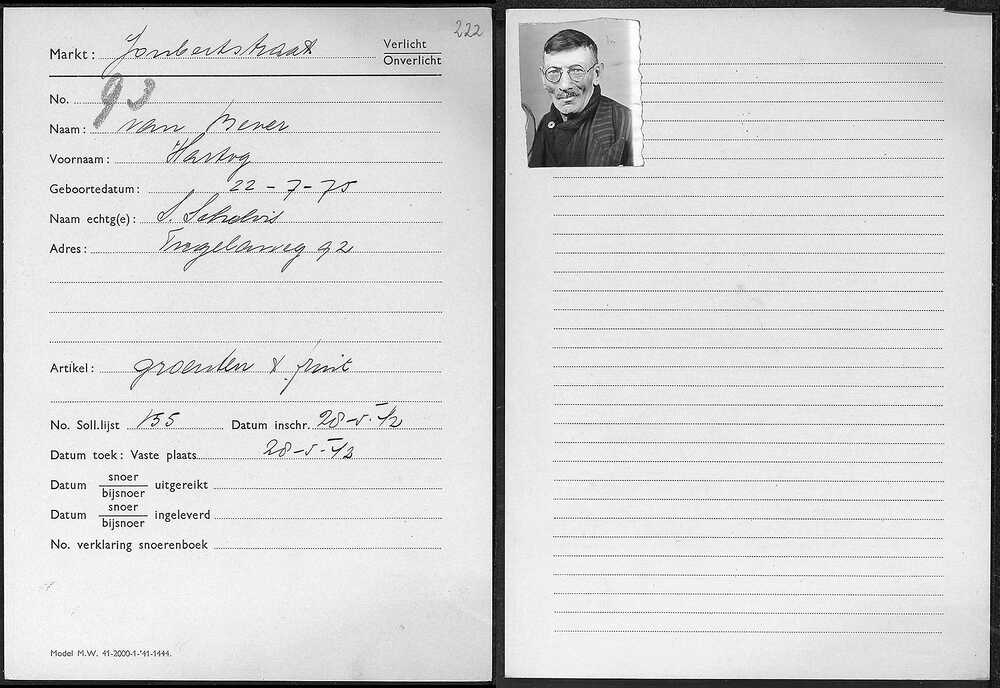 222
Markt: Joubertstraat
Verlicht
Onverlicht
No. 93
Naam: van Bever
Voornaam: Hartog
Geboortedatum: 22-7-75
Naam echtg(e): S. Schelvis
Adres: 92
Artikel: groenten & fruit
No. Soll.lijst 155 Datum inschr. 28-5-42
Datum toek: Vaste plaats 28-5-42
Datum snoer
bijsnoer uitgereikt
Datum snoer
bijsnoer ingeleverd
No. verklaring snoerenboek
Model M.W. 41-2000-1-'41-1444.